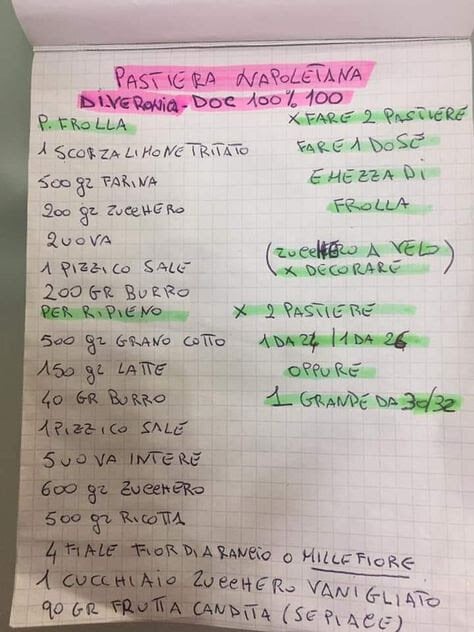 PASTIERA NAPOLETANA
DI VERONICA - DOC 100% 100
P. FROLLA
1 SCORZA LIMONE TRITATO
500 gr FARINA
200 gr ZUCCHERO
2 UOVA
1 PIZZICO SALE
200 GR BURRO
PER RIPIENO
500 gr GRANO COTTO
150 gr LATTE
40 GR BURRO
1 PIZZICO SALE
5 UOVA INTERE
600 gr ZUCCHERO
500 gr RICOTTA
4 FIALE FIOR DI ARANCIO O MILLEFIORE
1 CUCCHIAIO ZUCCHERO VANIGLIATO
90 GR FRUTTA CANDITA (SE PIACE)
X FARE 2 PASTIERE
FARE 1 DOSE
E MEZZA DI
FROLLA
(ZUCCHERO A VELO
X DECORARE)
X 2 PASTIERE
1 DA 24 / 1 DA 26
OPPURE
1 GRANDE DA 30/32